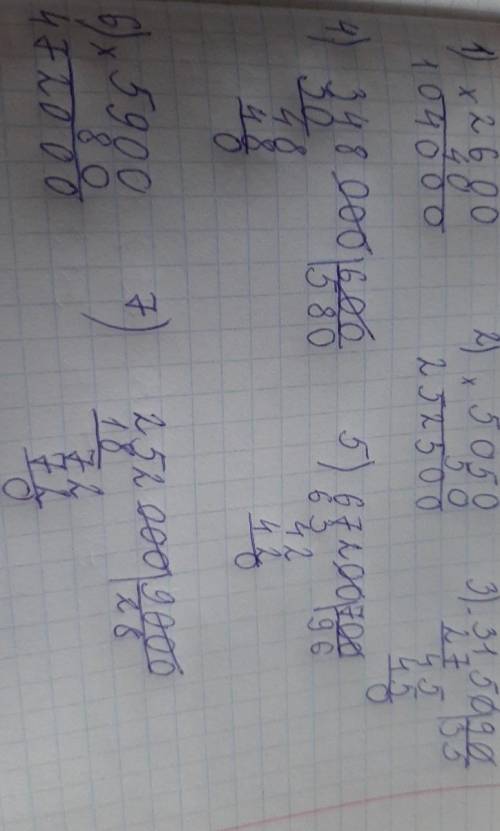 1) × 2600
40
104000
2) × 5050
50
252500
3) - 3150 90
27 35
45
45
0
4) 348000 600
30 580
48
48
0
5) 67200 700
63 96
42
42
0
6) × 5900
80
472000
7) 252000 9000
18 28
72
72
0